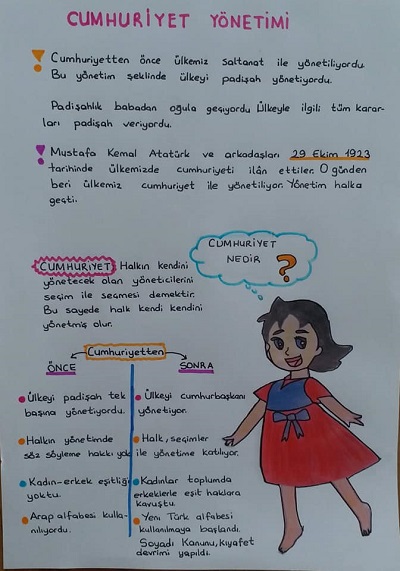 CUMHURİYET YÖNETİMİ
Cumhuriyetten önce ülkemiz saltanat ile yönetiliyordu.
Bu yönetim şeklinde ülkeyi padişah yönetiyordu.
Padişahlık babadan oğula geçiyordu. Ülkeyle ilgili tüm karar-
ları padişah veriyordu.
Mustafa Kemal Atatürk ve arkadaşları 29 Ekim 1923
tarihinde ülkemizde cumhuriyeti ilân ettiler. O günden
beri ülkemiz cumhuriyet ile yönetiliyor. Yönetim halka
geçti.
CUMHURİYET
NEDİR ?
CUMHURİYET Halkın kendini
yönetecek olan yöneticilerini
seçim ile seçmesi demektir.
Bu sayede halk kendi kendini
yönetmiş olur.
Cumhuriyetten
ÖNCE
SONRA
Ülkeyi padişah tek
başına yönetiyordu.
Ülkeyi cumhurbaşkanı
yönetiyor.
Halkın yönetimde
söz söyleme hakkı yok
Halk, seçimler
ile yönetime katılıyor.
Kadın-erkek eşitliği
yoktu.
Kadınlar toplumda
erkeklerle eşit haklara
kavuştu.
Arap alfabesi kulla-
nılıyordu.
Yeni Türk alfabesi
kullanılmaya başlandı.
Soyadı Kanunu, kıyafet
devrimi yapıldı.